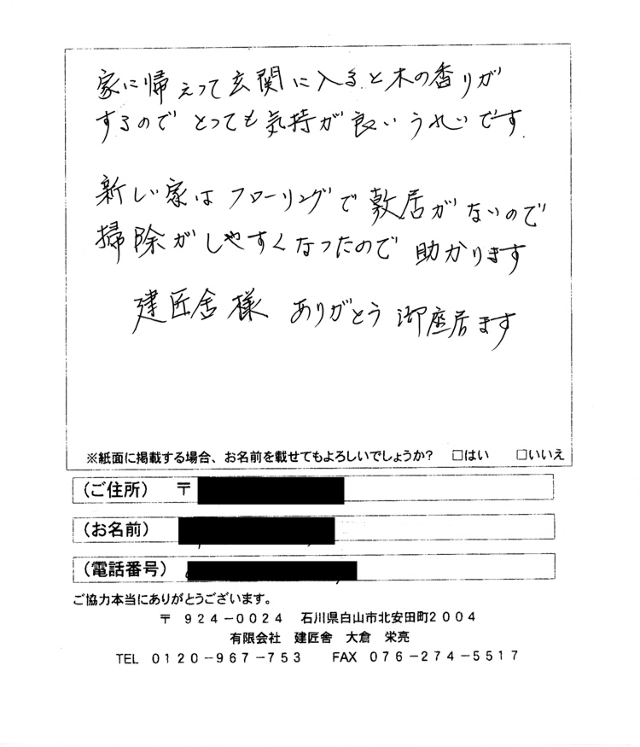 家に帰えって玄関に入ると木の香りが
するので とっても気持が良い うれしいです.
新しい家はフローリングで敷居がないので
掃除がしやすくなったので 助かります
建匠舎様 ありがとう御座居ます
※紙面に掲載する場合、お名前を載せてもよろしいでしょうか? □はい □いいえ
(ご住所) 〒
(お名前)
(電話番号)
ご協力本当にありがとうございます。
〒 924-0024 石川県白山市北安田町2004
有限会社 建匠舎 大倉 栄亮
TEL 0120-967-753 FAX 076-274-5517